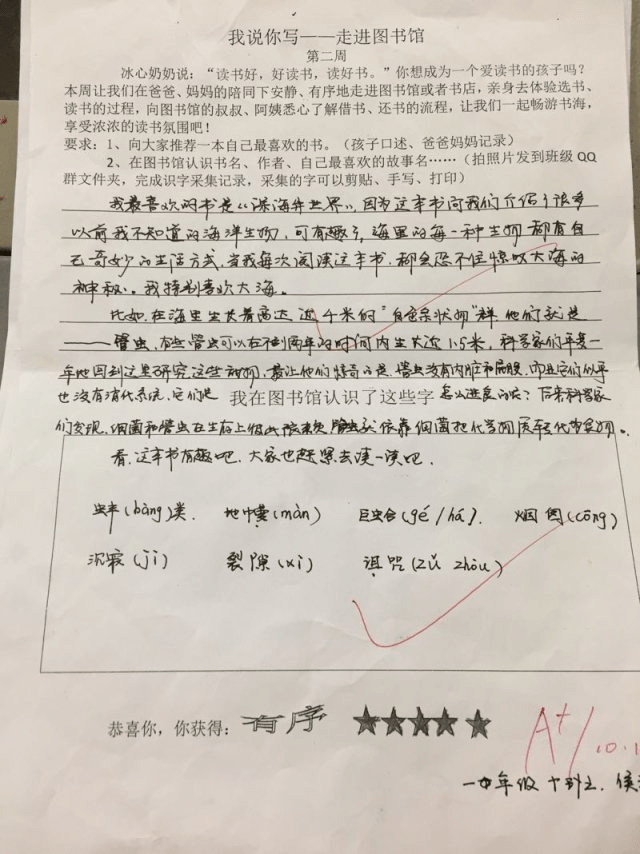 我说你写——走进图书馆
第二周
冰心奶奶说：“读书好，好读书，读好书。”你想成为一个爱读书的孩子吗？
本周让我们在爸爸、妈妈的陪同下安静、有序地走进图书馆或者书店，亲身去体验选书、
读书的过程，向图书馆的叔叔、阿姨悉心了解借书、还书的流程，让我们一起畅游书海，
享受浓浓的读书氛围吧！
要求：1、向大家推荐一本自己最喜欢的书。（孩子口述、爸爸妈妈记录）
2、在图书馆认识书名、作者、自己最喜欢的故事名……（拍照片发到班级QQ
群文件夹，完成识字采集记录，采集的字可以剪贴、手写、打印）
我最喜欢的书是《深海奇世界》，因为这本书向我们介绍了很多
以前我不知道的海洋生物，可有趣了，海里的每一种生物都有自
己奇妙的生活方式，当我每次阅读这本书，都会忍不住惊叹大海的
神秘。我特别喜欢大海。
比如，在海里生长着高达近4米的“白色条状物”群，他们就是
——管虫，有些管虫可以在不到两年的时间内生长近1.5米，科学家们年复一
年地回到这里研究这些动物，最让他们惊奇的是，管虫没有内脏和屁股，而且它们似乎
也没有消化系统，它们是
我在图书馆认识了这些字
怎么进食的呢？后来科学家
们发现，细菌和管虫在生存上彼此依靠细菌把化学物质转化为食物。
看，这本书有趣吧，大家也赶紧去读一读吧。
蚌(bàng)类 地中蔓(màn) 巨蛤(gé/há) 烟囱(cōng)
沉寂(jì) 裂隙(xì) 诅咒(zǔ zhòu)
恭喜你，你获得：有序 ★★★★★
A+
10.1
一年级十班